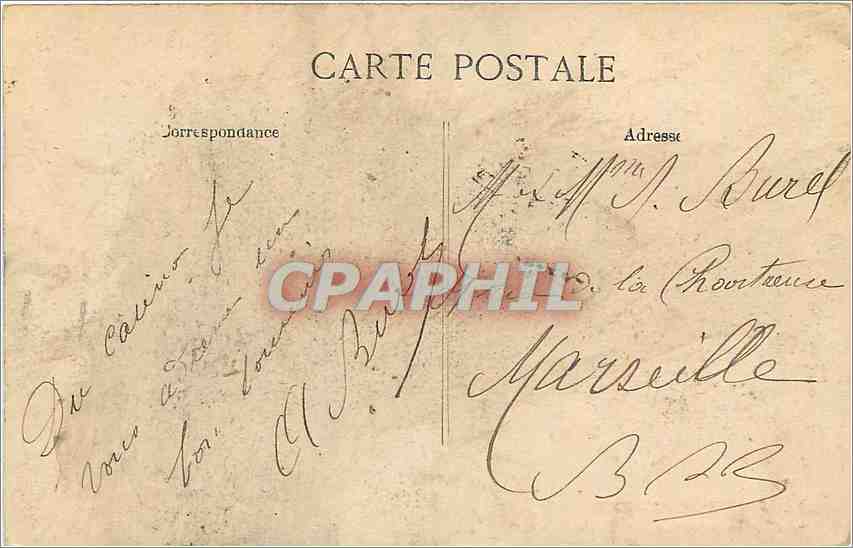 CARTE POSTALE
Correspondance
Du casino je
vous adresse un
bon souvenir
A Burel
Adresse
M et Mme J. Burel
de la Chartreuse
Marseille
B D R
CPAPHIL